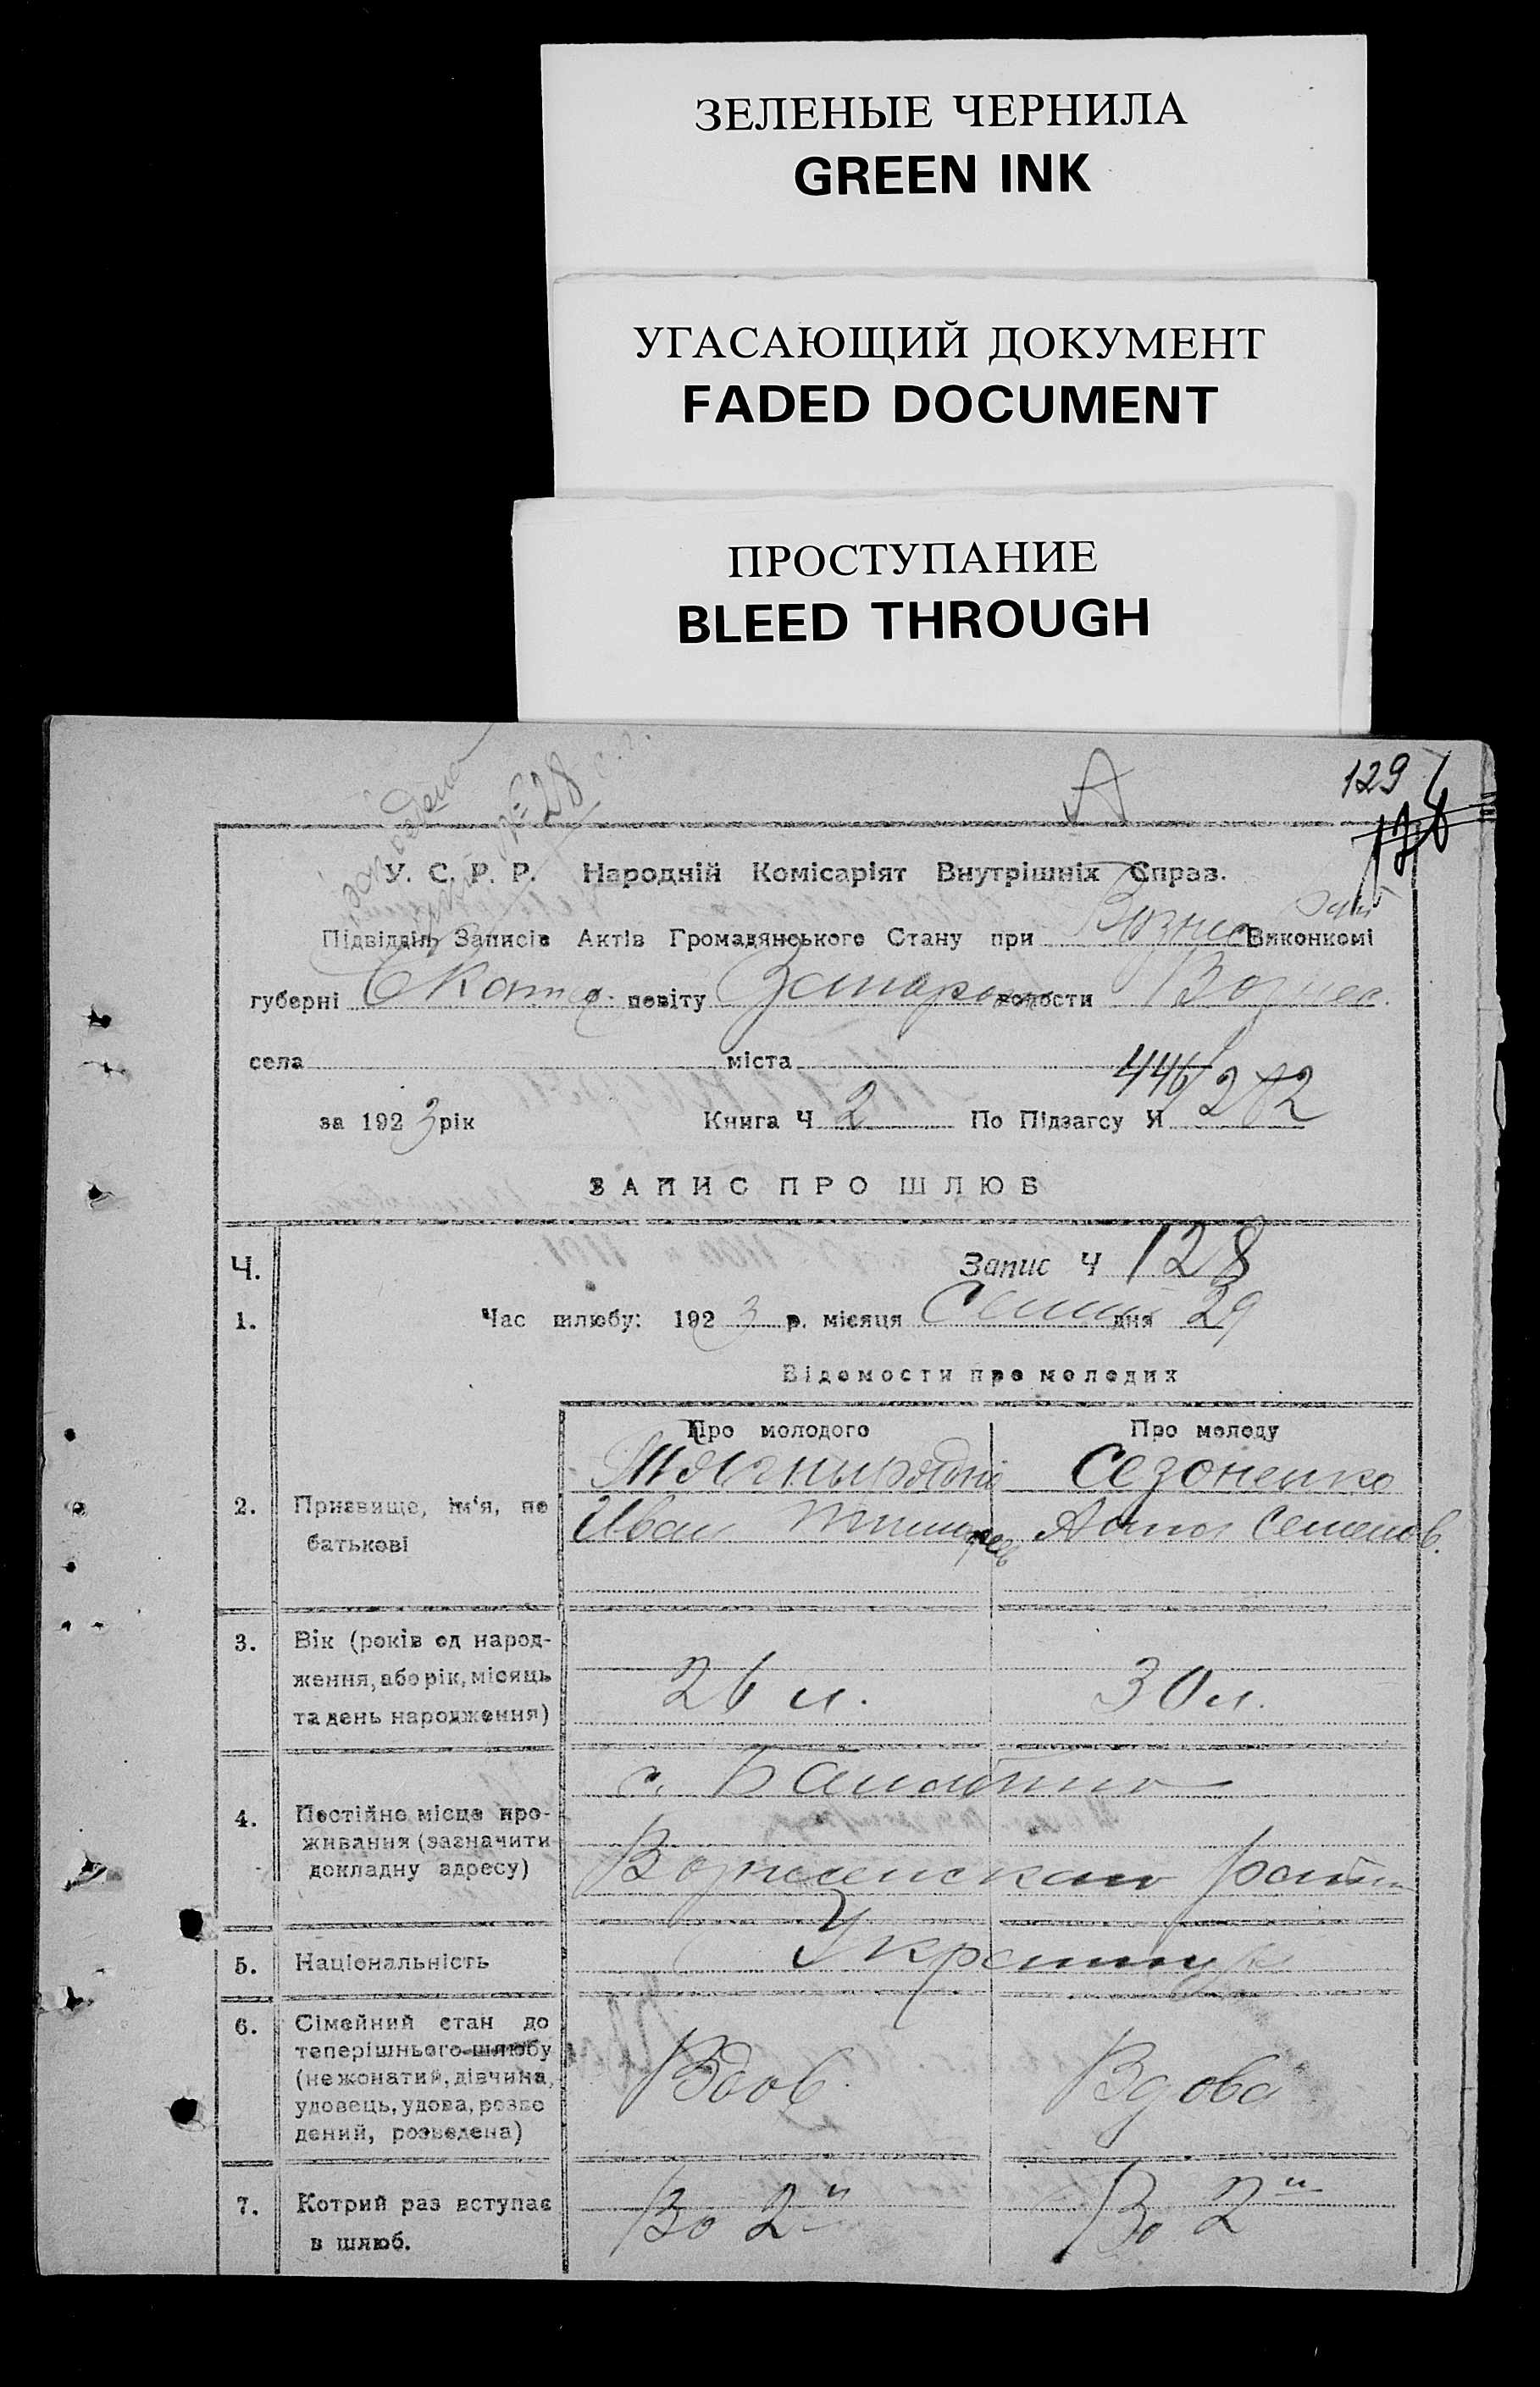 ЗЕЛЕНЫЕ ЧЕРНИЛА
GREEN INK
УГАСАЮЩИЙ ДОКУМЕНТ
FADED DOCUMENT
ПРОСТУПАНИЕ
BLEED THROUGH
А
129
№ 28 с. г.
У. С. Р. Р. Народній Комісаріят Внутрішніх Справ.
Підвідділ Записів Актів Громадянського Стану при Возне Виконкомі
губерні Екат повіту Запорож волости Вознес.
села міста
446/282
за 1923 рік Книга Ч 2 По Підзагсу Я
ЗАПИС ПРО ШЛЮБ
Ч. Запис Ч 128
1. Час шлюбу: 1923 р. місяця дня 29
Відомости про молодих
Про молодого Про молоду
Сезоненко
2. Призвище, ім'я, по Иван Анна Семенов.
батькові
3. Вік (років од народ-
ження, або рік, місяць 26 л. 30 л.
та день народження)
с.
4. Постійне місце про-
живання (зазначити
докладну адресу)
5. Національність
6. Сімейний стан до
теперішнього шлюбу
(не жонатий, дівчина, Вдов. Вдова
удовець, удова, розве
дений, розведена)
7. Котрий раз вступає Во 2й Во 2й
в шлюб.